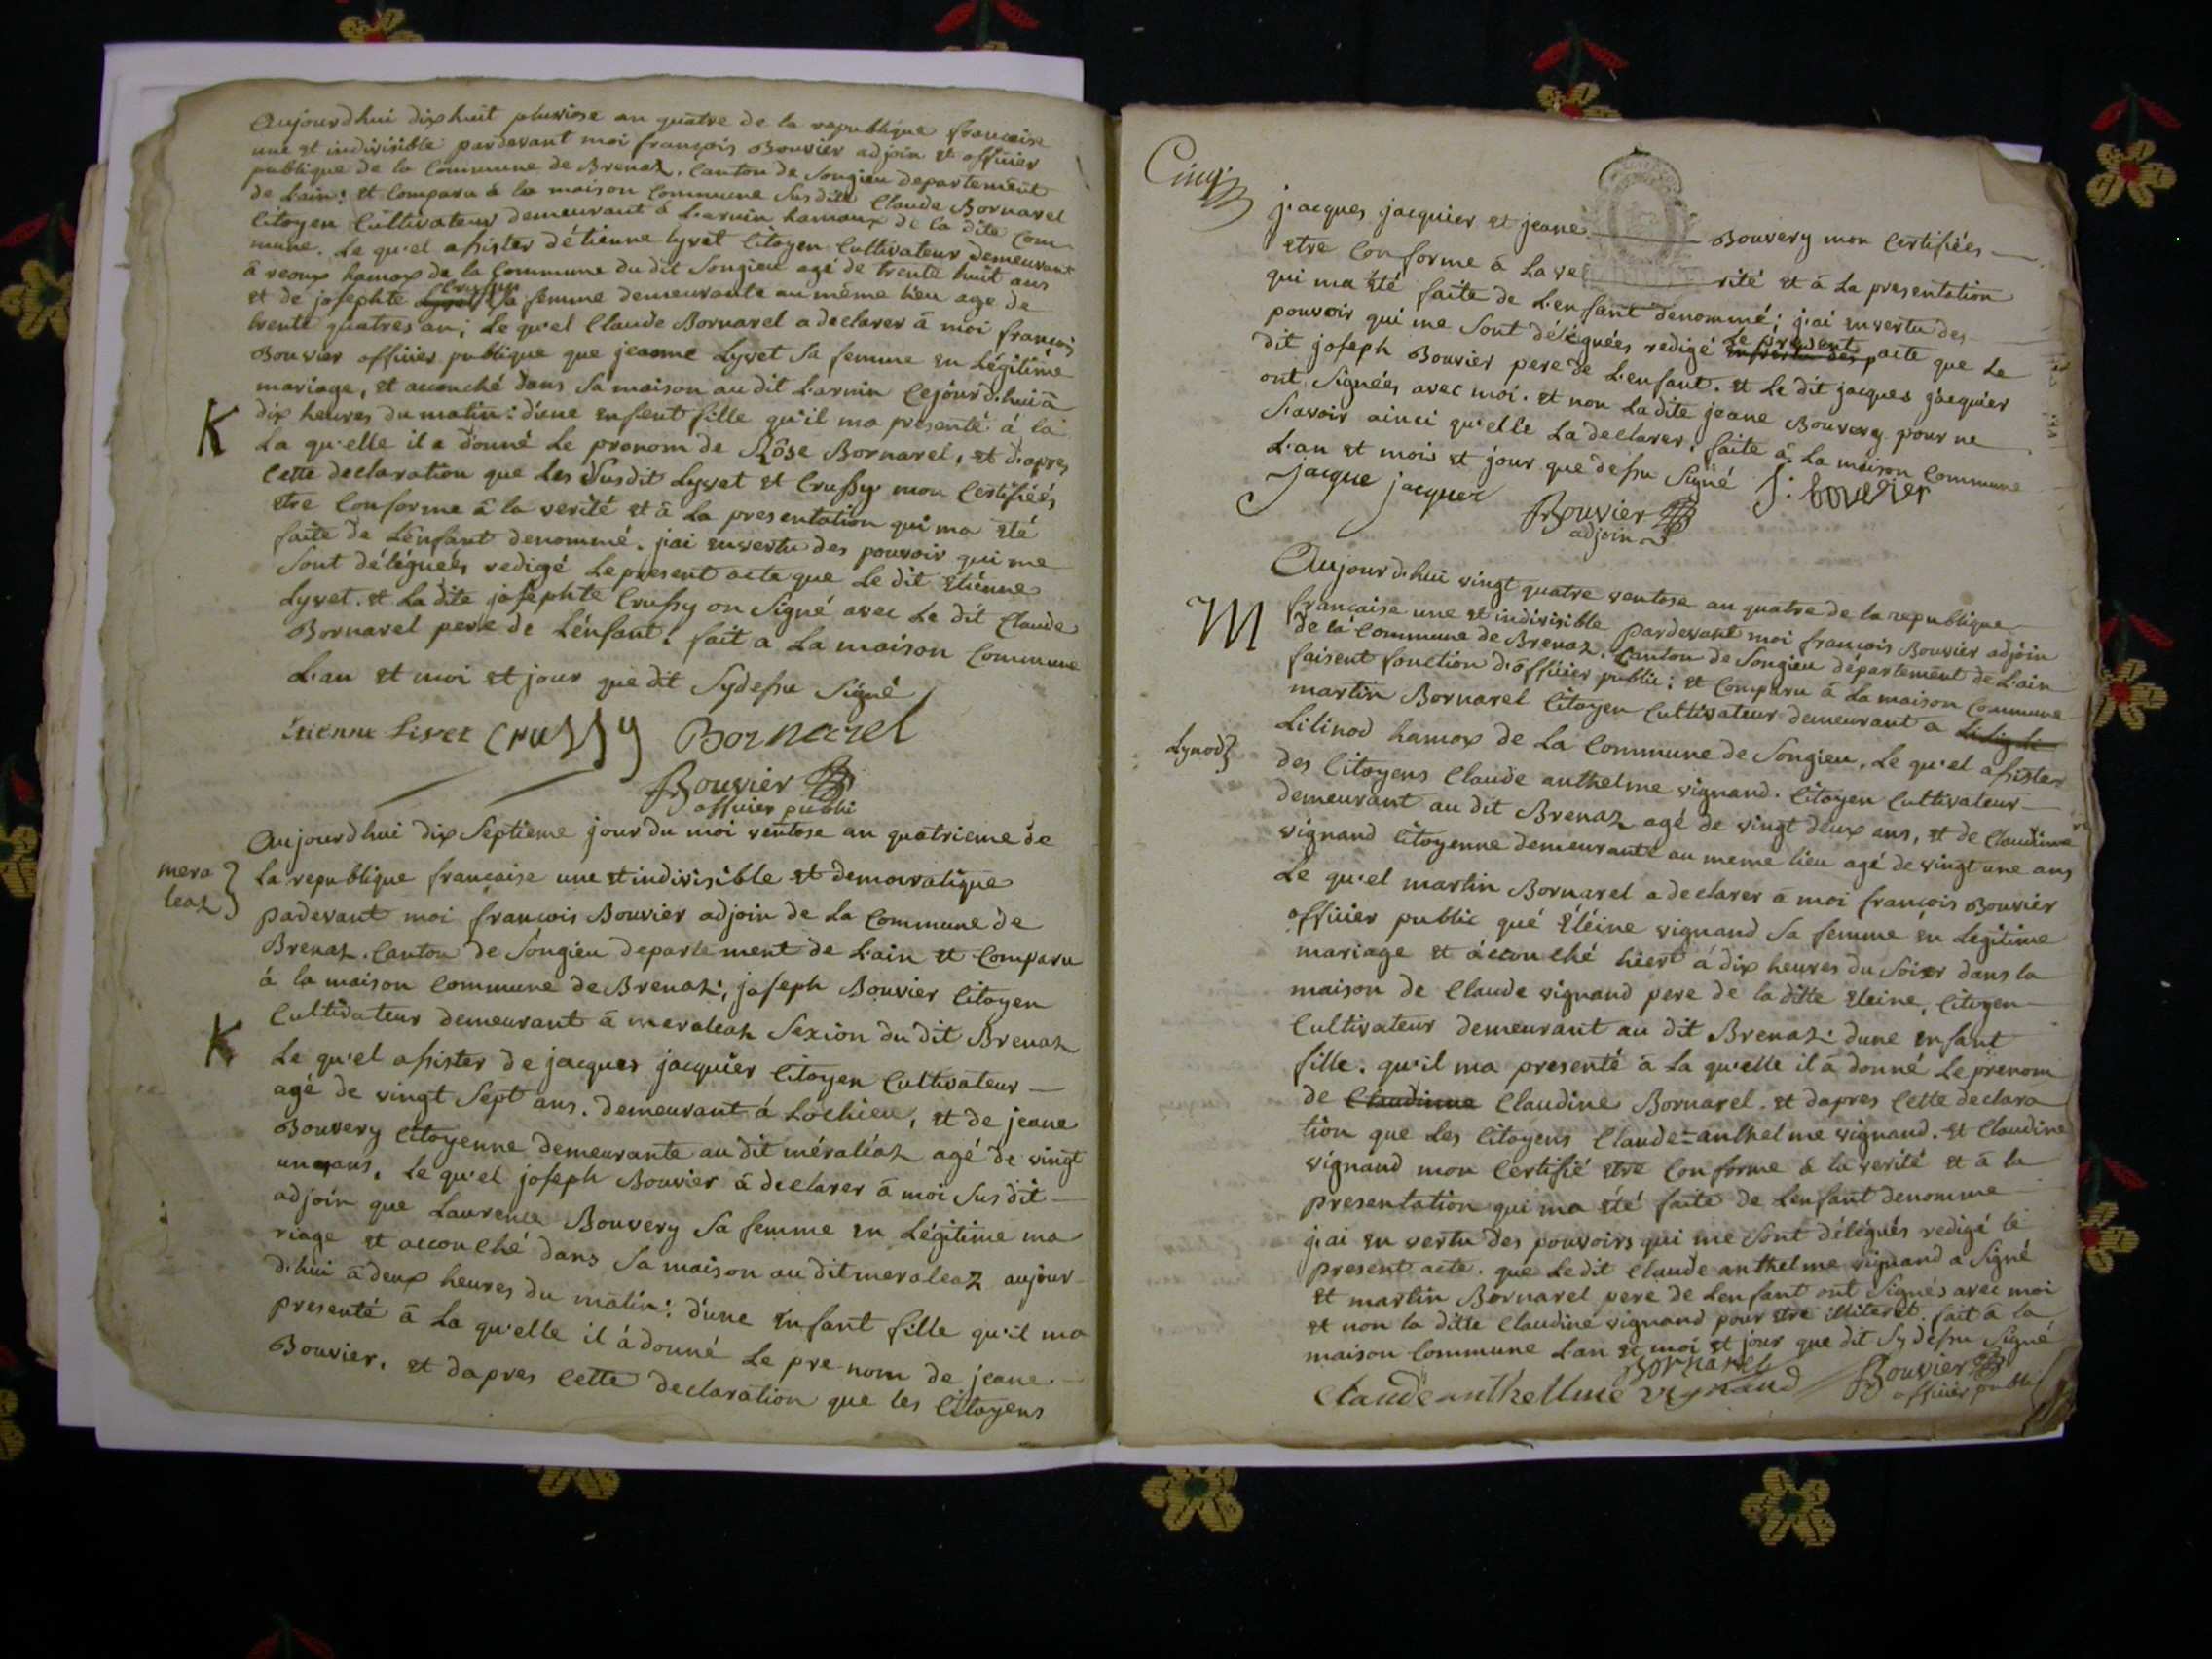 Aujourdhui dixhuit pluviose an quatre de la republique francaise
une et indivisible pardevant moi françois Bouvier adjoin et officier
publique de la Commune de Brenaz. Canton de Songieu departement
de L'ain: et Comparu à la maison Commune Susdite Claude Bornarel
Citoyen Cultivateur demeurant à L'arnin hamaux de la dite Com
mune. Le qu'el assister détienne Lyvet Citoyen Cultivateur demeurant
à reoux hamox de la Commune du dit Songieu agé de trente huit ans
Crussy
et de josephte Lyvet Sa femme demeurante au même lieu age de
trente quatres an; Le qu'el Claude Bornarel a declarer à moi françois
Bouvier officier publique que jeanne Lyvet Sa femme en Légitime
mariage, et accouché dans Sa maison au dit L'arnin Cejourd'hui à
dix heures du matin: d'une enfent fille qu'il ma présenté à la
K
La qu'elle il a donné Le pronom de Rôse Bornarel, et d'apres
Cette declaration que Les Susdit Lyvet et Crussy mon Certifiéés
etre Conforme à la verité et à La presentation qui ma été
faite de L'enfant denommé. j'ai envertu des pouvoir qui me
Sont déléguéés redigé Lepresent acte que Le dit Etiénne
Lyvet. et La dite josephte Crussy on Signé avec Le dit Claude
Bornarel pere de L'énfant. fait a La maison Commune
L'an et moi et jour que dit Sydessu Signé
Etienne Livet Crussy Bornarel
Bouvier
officier publi
Aujourdhui dix Septieme jour du moi ventose an quatrieme de
mera
leaz
La republique francaise une et indivisible et democratique
padevant moi francois Bouvier adjoin de La Commune de
Brenaz. Canton de Songieu departement de L'ain et Comparu
à la maison Commune de Brenaz; joseph Bouvier Citoyen
Cultivateur demeurant à meraleaz Sexion du dit Brenaz
K
Le qu'el assister de jacques jacquier Citoyen Cultivateur
agé de vingt Sept ans. demeurant à Lochieu, et de jeane
Bouvery Citoyenne demeurante au dit méraléaz agé de vingt
un ans. Le qu'el joseph Bouvier à declarer à moi Susdit
adjoin que Laurence Bouvery Sa femme en Légitime ma
riage et accouché dans Sa maison au dit meraleaz aujour
d'hui à deux heures du matin: d'une enfant fille qu'il ma
presenté à La qu'elle il à donné Le pre nom de jeane
Bouvier. et dapres Cette declaration que les Citoyens
Cinq
jacques jacquier et jeane Bouvery mon Certifiées
etre Conforme à La ve rité et à La presentation
qui ma été faite de L'enfant denommé; j'ai envertu des
pouvoir qui me Sont déléguées redigé envertu des acte que Le
Le present
dit joseph Bouvier pere de L'enfant. et Le dit jacques jacquier
ont Signéés avec moi. et non Ladite jeane Bouvery pour ne
Savoir ainci qu'elle La declarer. faite à La maison Commune
L'an et mois et jour que dessu Signé
jacque jacquer J. bouvier
Bouvier
adjoin
Aujourd'hui vingt quatre ventose an quatre de la republique
M
francaise une et indivisible Pardevant moi francois Bouvier adjoin
de la Commune de Brenaz. Canton de Songieu département de L'ain
faisent fonction d'officier public: et Comparu à La maison Commune
martin Bornarel Citoyen Cultivateur demeurant a
Lynod
Lilinod hamox de La Commune de Songieu. Le qu'el assister
des Citoyens Claude anthelme vignand. Citoyen Cultivateur
demeurant au dit Brenaz agé de vingt deux ans, et de Claudine
vignand Citoyenne demeurante au meme lieu agé de vingt une ans
Le qu'el martin Bornarel a declarer à moi francois Bouvier
officier public qué Eléine vignand Sa femme en Legitime
mariage et àccouché hiert à dix heures du Soier dans la
maison de Claude vignand pere de la ditte Eleine, Citoyen
Cultivateur demeurant au dit Brenaz: dune enfant
fille. qu'il ma presenté à La qu'elle il à donné Le prenom
de Claudinne Claudine Bornarel. et dapres Cette declara
tion que Les Citoyens Claude=anthelme vignand. et Claudine
vignand mon Certifié etre Conforme à la verité et à la
presentation qui ma été faite de Lenfant denomme
j'ai en vertu des pouvoirs qui me Sont délégués redigé le
present acte. que Ledit Claude anthelme vignand a Signé
et martin Bornarel pere de Lenfant ont Signés avec moi
et non la ditte Claudine vignand pour etre illiteret. fait à la
maison Commune L'an et moi et jour que dit Sydessu Signé
Bornarel
Claude anthellme vignand Bouvier
officier public